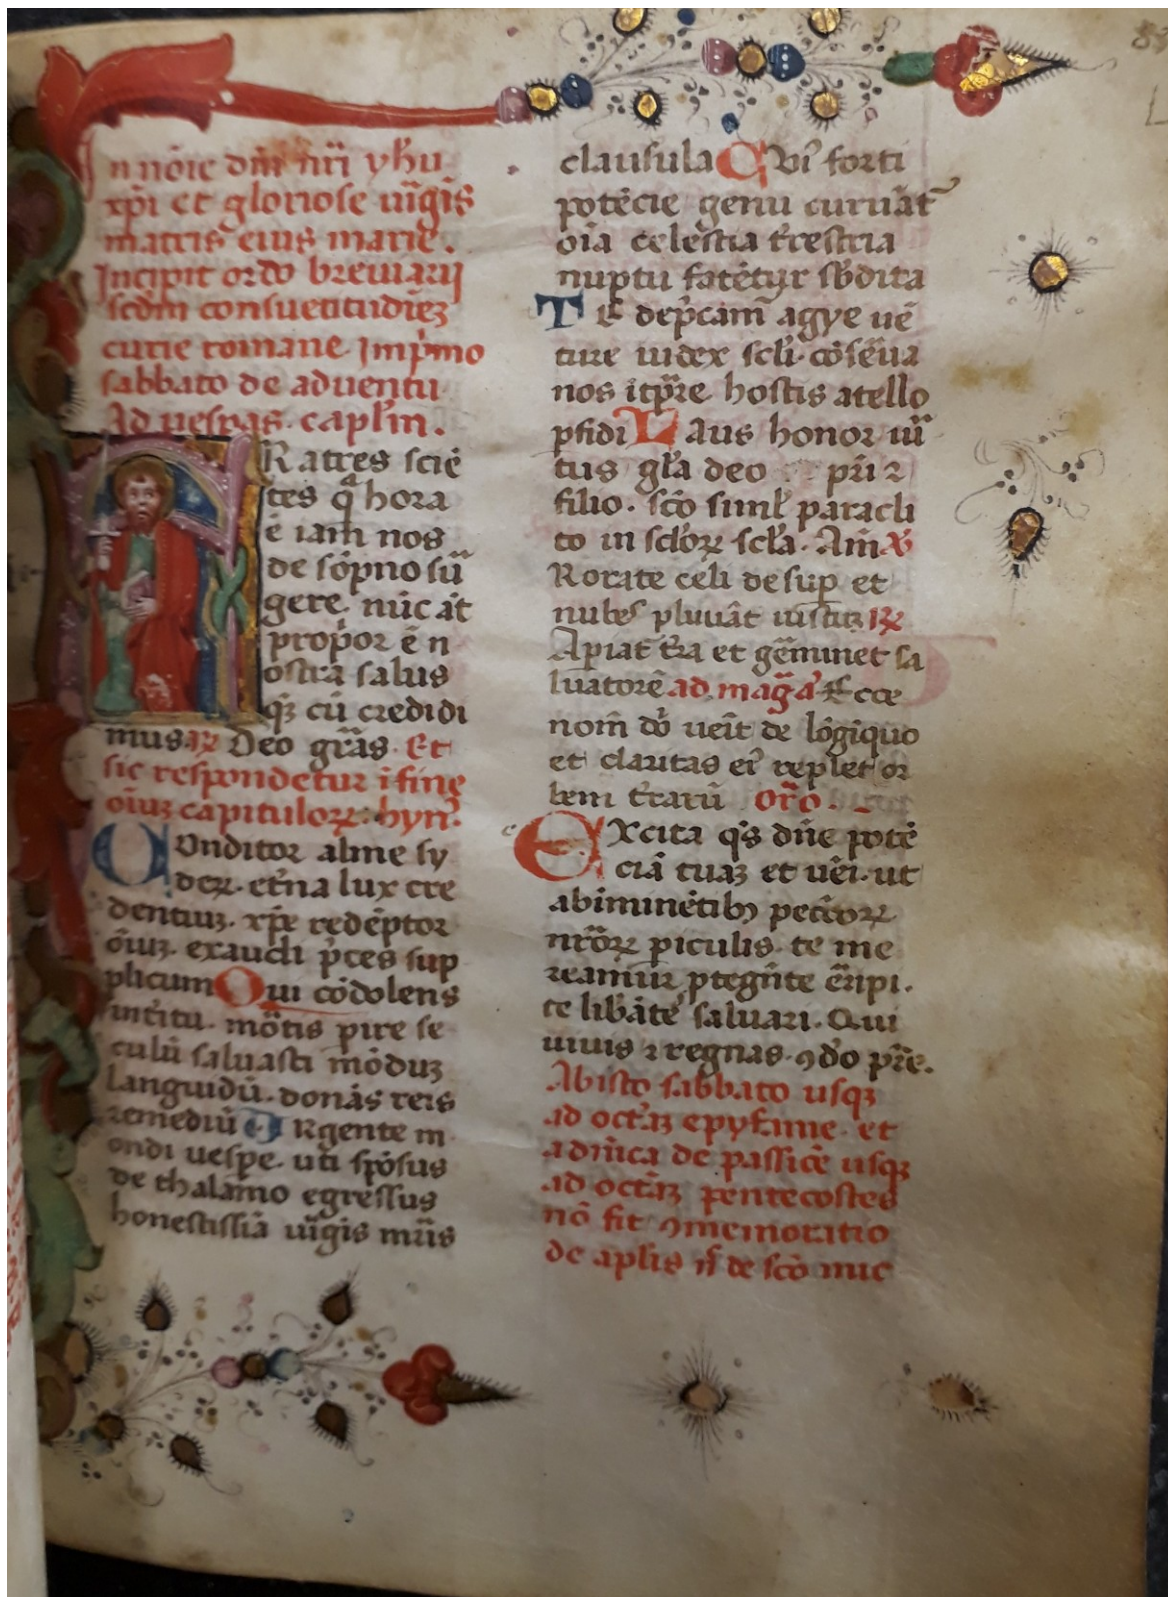 In nōie dn̄i nr̄i yhū
xp̄i et gloriose uīgis
matris eius marie.
Incipit ordo breuiarij
scd̄m consuetitudīeꝫ
curie romane. Imp̄mo
sabbato de aduentu
Ad uesꝑas. capl'm.
FRatres sciē
tes q̄ hora
ē iam nos
de sōpno sū
gere. nūc āt
propōr ē n
ostra salus
qꝫ cū credidi
mus ꝶ Deo grās. Et
sic respondetur ī fine
oīuꝫ capituloꝝ. hyn̄.
COnditor alme sy
deꝝ. et̄na lux cre
dentiuꝫ. xp̄e redēptor
ōiuꝫ. exaudi p̄ces sup
plicum Qui cōdolens
int̄itu. mōtis pire se
culū saluasti mōduꝫ
languidū. donās reis
remediū URgente m
ondi uesp̄e. uti spōsus
de thalamo egressus
honestissīa uīgis mr̄is
clausula Cuī forti
potēcie genu curuāt̄
oīa celestia t̄restria
nuptu fatētur sb̄dita
TE dep̄cam̄ agye uē
ture iudex scl̄i. cōsēua
nos īt̄pre. hostis atello
ꝑfidi Laus honor uī
tus gl̄a deo pr̄i ⁊
filio. scō siml̄ paracli
to in scl̄oꝝ scl̄a. Am̄ ℣
Rorate celi desuꝑ et
nubes pluuāt iustuꝫ ꝶ
Apiat t̄ra et gēminet sa
luatorē ad. maḡ. a. Ecce
nom̄ dō ueīt de lōgiquo
et claritas eī replet or
bem t̄rarū oro.
EXcita qs̄ dn̄e potē
ciā tuaꝫ et uēi. ut
abiminētibꝫ pec̄toꝝ
nr̄oꝝ piculis. te me
reamur ꝓtegn̄te ēripi.
te libāte saluari. Qui
uiuis ⁊ regnas. ꝯ dō pr̄e.
Abisto sabbato usqꝫ
ad oct̄aꝫ epyfanie. et
adn̄ica de passiōe usqꝫ
ad octāꝫ pentecostes
nō fit ꝯmemoratio
de apl̄is nˢ de scō mic